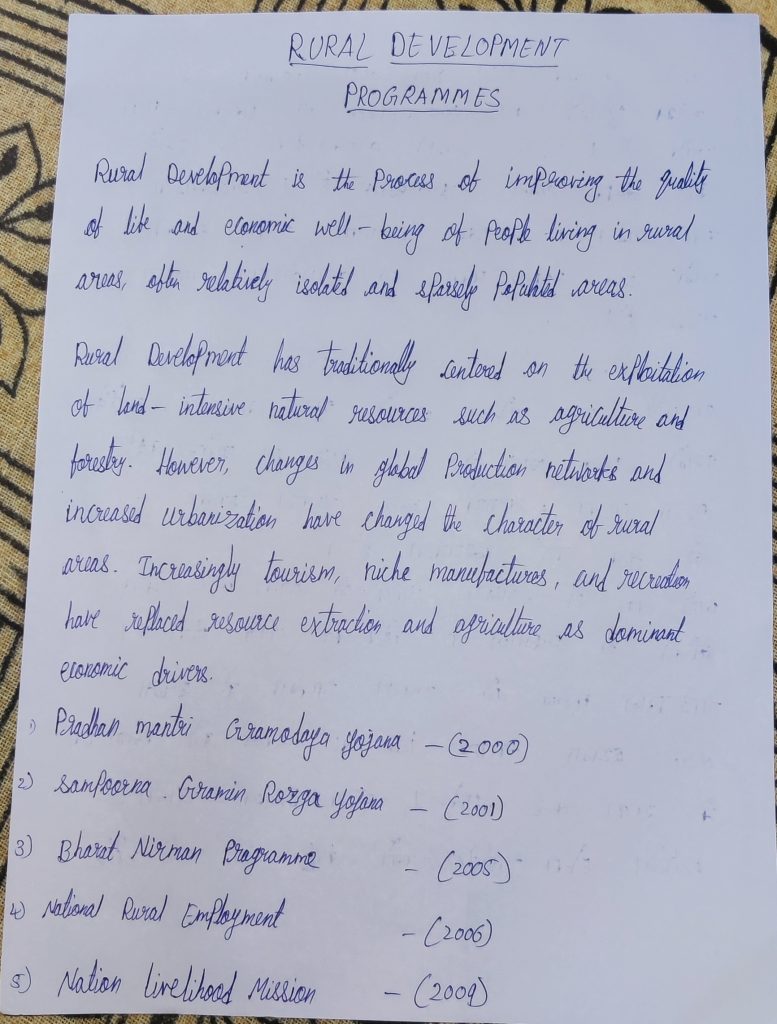 RURAL DEVELOPMENT
PROGRAMMES
Rural Development is the Process of improving the quality
of life and economic well - being of People living in rural
areas, often relatively isolated and sparsely Populated areas.
Rural Development has traditionally centered on the exploitation
of land - intensive natural resources such as agriculture and
forestry. However, changes in global Production networks and
increased urbanization have changed the character of rural
areas. Increasingly tourism, niche manufactures, and recreation
have replaced resource extraction and agriculture as dominant
economic drivers.
1) Pradhan mantri Gramodaya Yojana - (2000)
2) Sampoorna Gramin Rozga Yojana - (2001)
3) Bharat Nirman Programme - (2005)
4) National Rural Employment - (2006)
5) Nation livelihood Mission - (2009)